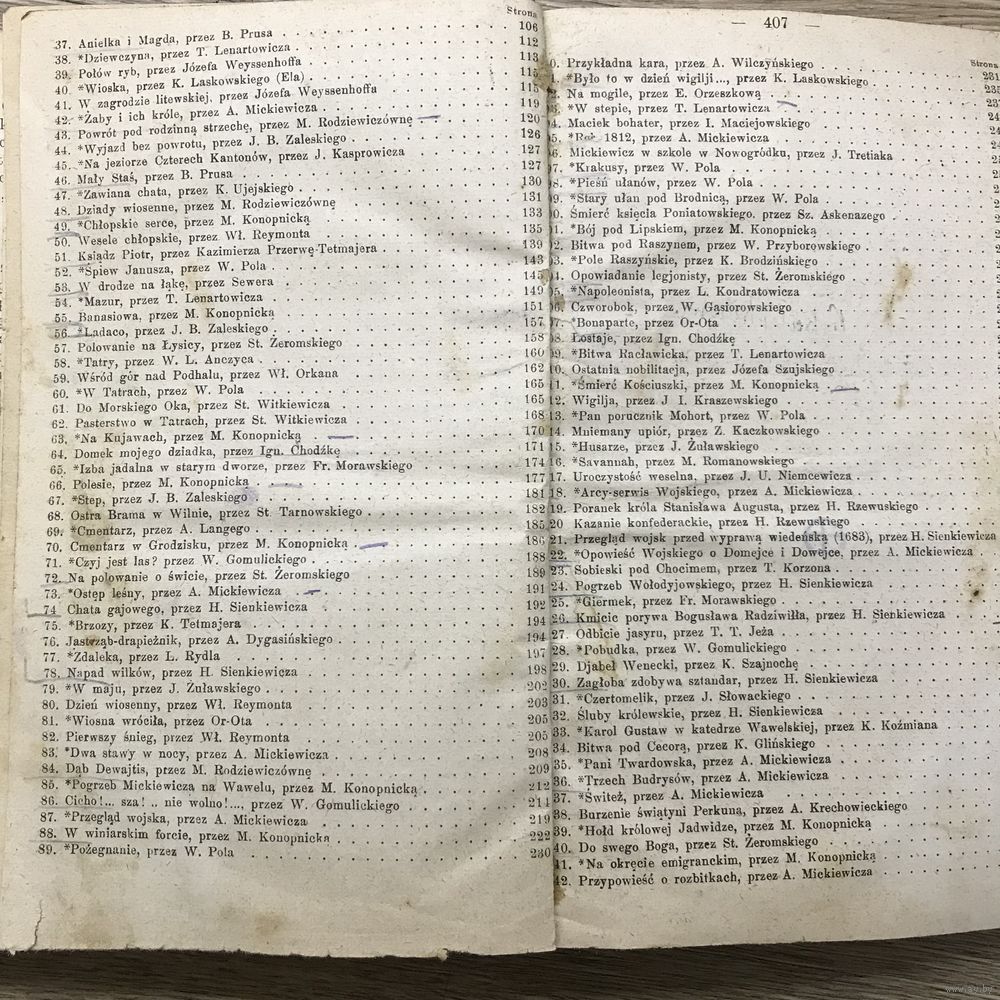 Strona
37. Anielka i Magda, przez B. Prusa 106
38. *Dziewczyna, przez T. Lenartowicza 112
39. Połów ryb, przez Józefa Weyssenhoffa 113
40. *Wioska, przez K. Laskowskiego (Ela)
41. W zagrodzie litewskiej, przez Józefa Weyssenhoffa
42. *Żaby i ich króle, przez A. Mickiewicza 119
43. Powrót pod rodzinną strzechę, przez M. Rodziewiczównę 120
44. *Wyjazd bez powrotu, przez J. B. Zaleskiego 126
45. *Na jeziorze Czterech Kantonów, przez J. Kasprowicza 127
46. Mały Staś, przez B. Prusa 127
47. *Zawiana chata, przez K. Ujejskiego 130
48. Dziady wiosenne, przez M. Rodziewiczównę 131
49. *Chłopskie serce, przez M. Konopnicką 133
50. Wesele chłopskie, przez Wł. Reymonta 135
51. Ksiądz Piotr, przez Kazimierza Przerwę-Tetmajera 139
52. *Śpiew Janusza, przez W. Pola 143
53. W drodze na łąkę, przez Sewera 145
54. *Mazur, przez T. Lenartowicza 149
55. Banasiowa, przez M. Konopnicką 151
56. *Ladaco, przez J. B. Zaleskiego 157
57. Polowanie na Łysicy, przez St. Żeromskiego 158
58. *Tatry, przez W. L. Anczyca 160
59. Wśród gór nad Podhalu, przez Wł. Orkana 162
60. *W Tatrach, przez W. Pola 165
61. Do Morskiego Oka, przez St. Witkiewicza 165
62. Pasterstwo w Tatrach, przez St. Witkiewicza 168
63. *Na Kujawach, przez M. Konopnicką 170
64. Domek mojego dziadka, przez Ign. Chodźkę 171
65. *Izba jadalna w starym dworze, przez Fr. Morawskiego 174
66. Polesie, przez M. Konopnicką 177
67. *Step, przez J. B. Zaleskiego 181
68. Ostra Brama w Wilnie, przez St. Tarnowskiego 182
69. *Cmentarz, przez A. Langego 185
70. Cmentarz w Grodzisku, przez M. Konopnicką 186
71. *Czyj jest las? przez W. Gomulickiego 188
72. Na polowanie o świcie, przez St. Żeromskiego 189
73. *Ostęp leśny, przez A. Mickiewicza 191
74 Chata gajowego, przez H. Sienkiewicza 192
75. *Brzozy, przez K. Tetmajera 194
76. Jastrząb-drapieżnik, przez A. Dygasińskiego 194
77. *Zdaleka, przez L. Rydla 197
78. Napad wilków, przez H. Sienkiewicza 198
79. *W maju, przez J. Żuławskiego 202
80. Dzień wiosenny, przez Wł. Reymonta 203
81. *Wiosna wróciła, przez Or-Ota 205
82. Pierwszy śnieg, przez Wł. Reymonta 205
83. *Dwa stawy w nocy, przez A. Mickiewicza 208
84. Dąb Dewajtis, przez M. Rodziewiczównę 209
85. *Pogrzeb Mickiewicza na Wawelu, przez M. Konopnicką 212
86. Cicho!... sza! .. nie wolno!..., przez W. Gomulickiego 214
87. *Przegląd wojska, przez A. Mickiewicza 219
88. W winiarskim forcie, przez M. Konopnicką 222
89. *Pożegnanie, przez W. Pola 230
— 407 —
Strona
0. Przykładna kara, przez A. Wilczyńskiego 231
1. *Było to w dzień wigilji..., przez K. Laskowskiego 235
2. Na mogile, przez E. Orzeszkową
3. *W stepie, przez T. Lenartowicza
4. Maciek bohater, przez I. Maciejowskiego
5. *Rok 1812, przez A. Mickiewicza
6. Mickiewicz w szkole w Nowogródku, przez J. Tretiaka
7. *Krakusy, przez W. Pola
8. *Pieśń ułanów, przez W. Pola
9. *Stary ułan pod Brodnicą, przez W. Pola
0. Śmierć księcia Poniatowskiego. przez Sz. Askenazego
1. *Bój pod Lipskiem, przez M. Konopnicką
2. Bitwa pod Raszynem, przez W. Przyborowskiego
3. *Pole Raszyńskie, przez K. Brodzińskiego
4. Opowiadanie legjonisty, przez St. Żeromskiego
5. *Napoleonista, przez L. Kondratowicza
6. Czworobok, przez W. Gąsiorowskiego
7. *Bonaparte, przez Or-Ota
8. Łostaje, przez Ign. Chodźkę
9. *Bitwa Racławicka, przez T. Lenartowicza
0. Ostatnia nobilitacja, przez Józefa Szujskiego
1. *Śmierć Kościuszki, przez M. Konopnicką
2. Wigilja, przez J I. Kraszewskiego
3. *Pan porucznik Mohort, przez W. Pola
4. Mniemany upiór, przez Z. Kaczkowskiego
5. *Husarze, przez J. Żuławskiego
6. *Savannah, przez M. Romanowskiego
17. Uroczystość weselna, przez J. U. Niemcewicza
18. *Arcy-serwis Wojskiego, przez A. Mickiewicza
19. Poranek króla Stanisława Augusta, przez H. Rzewuskiego
20 Kazanie konfederackie, przez H. Rzewuskiego
21. Przegląd wojsk przed wyprawą wiedeńską (1683), przez H. Sienkiewicza
22. *Opowieść Wojskiego o Domejce i Dowejce, przez A. Mickiewicza
23. Sobieski pod Chocimem, przez T. Korzona
24. Pogrzeb Wołodyjowskiego, przez H. Sienkiewicza
25. *Giermek, przez Fr. Morawskiego
26. Kmicic porywa Bogusława Radziwiłła, przez H. Sienkiewicza
27. Odbicie jasyru, przez T. T. Jeża
28. *Pobudka, przez W. Gomulickiego
29. Djabeł Wenecki, przez K. Szajnochę
30. Zagłoba zdobywa sztandar, przez H. Sienkiewicza
31. *Czertomelik, przez J. Słowackiego
32. Śluby królewskie, przez H. Sienkiewicza
33. *Karol Gustaw w katedrze Wawelskiej, przez K. Koźmiana
34. Bitwa pod Cecorą, przez K. Glińskiego
35. *Pani Twardowska, przez A. Mickiewicza
36. *Trzech Budrysów, przez A. Mickiewicza
37. *Świteź, przez A. Mickiewicza
38. Burzenie świątyni Perkuna, przez A. Krechowieckiego
39. *Hołd królowej Jadwidze, przez M. Konopnicką
40. Do swego Boga, przez St. Żeromskiego
41. *Na okręcie emigranckim, przez M. Konopnicką
42. Przypowieść o rozbitkach, przez A. Mickiewicza
www.ay.by